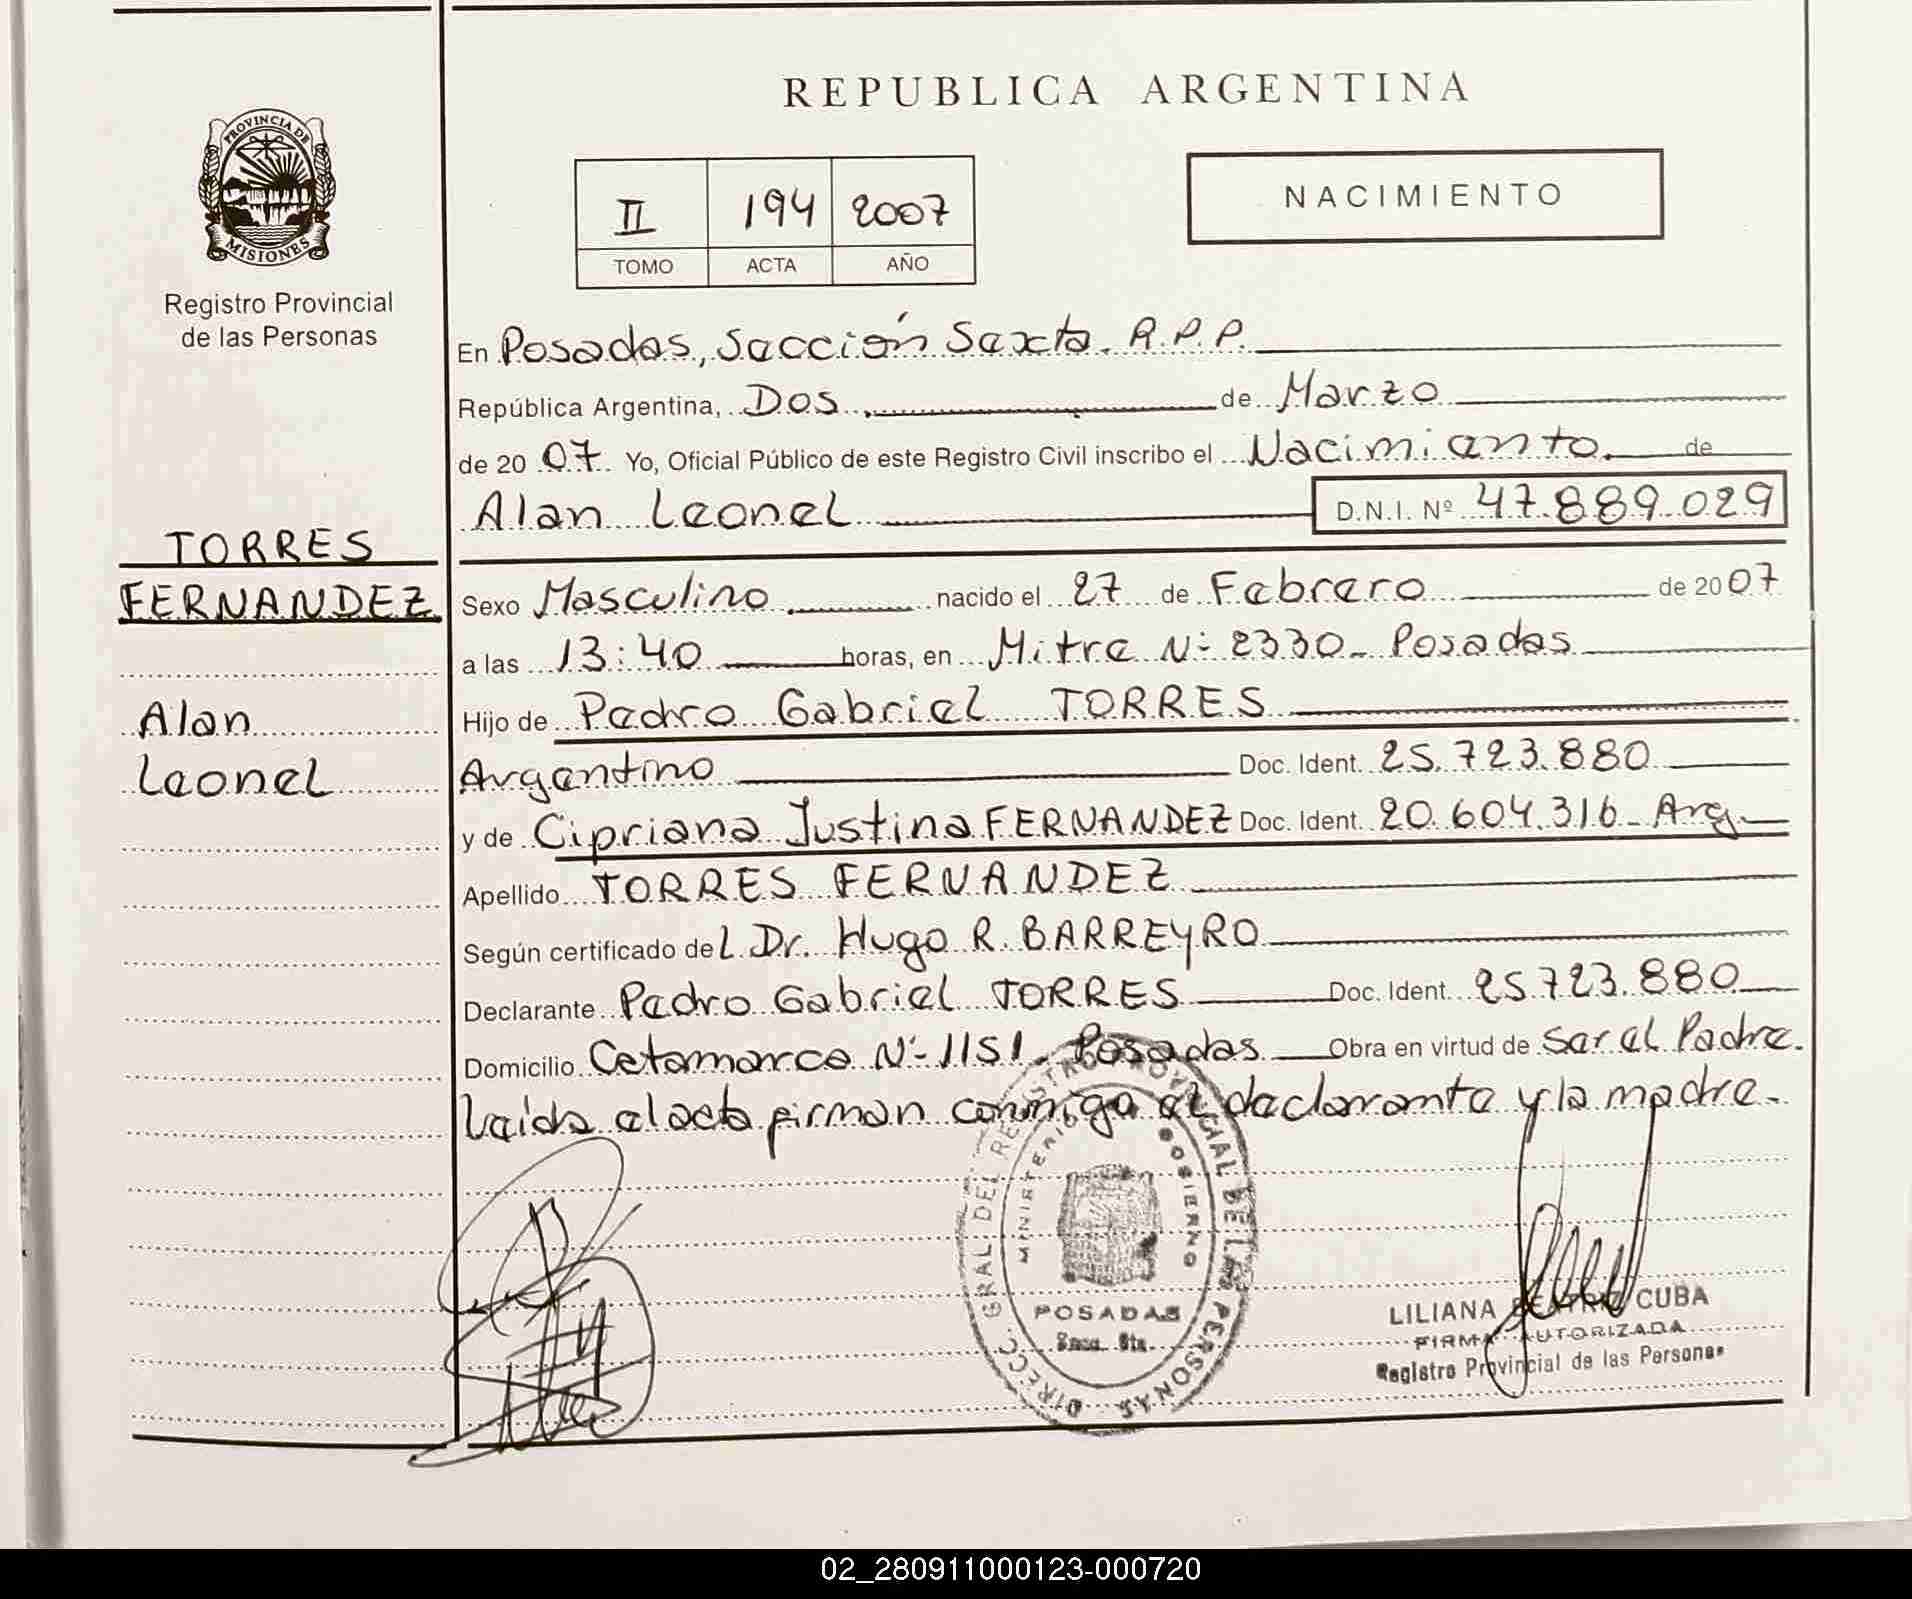 REPUBLICA ARGENTINA
PROVINCIA DE
MISIONES
Registro Provincial
de las Personas
II 194 2007
TOMO ACTA AÑO
NACIMIENTO
En Posadas, Sección Sexta. R.P.P.
República Argentina, Dos de Marzo
de 2007 Yo, Oficial Público de este Registro Civil inscribo el Nacimiento de
Alan Leonel D.N.I. Nº 47.889.029
TORRES
FERNANDEZ
Alan
Leonel
Sexo Masculino nacido el 27 de Febrero de 2007
a las 13:40 horas, en Mitre Nº 2330- Posadas
Hijo de Pedro Gabriel TORRES
Argentino Doc. Ident. 25.723.880
y de Cipriana Justina FERNANDEZ Doc. Ident. 20.604.316- Arg.
Apellido TORRES FERNANDEZ
Según certificado del Dr. Hugo R. BARREYRO
Declarante Pedro Gabriel TORRES Doc. Ident. 25.723.880
Domicilio Catamarca Nº 1151- Posadas Obra en virtud de ser el Padre.
Leída el acta firman conmigo el declarante y la madre.
DIRECC. GRAL DEL REGISTRO PROVINCIAL DE LAS PERSONAS
MINISTERIO GOBIERNO
POSADAS
Secc. 6ta.
LILIANA BEATRIZ CUBA
FIRMA AUTORIZADA
Registro Provincial de las Personas
02_280911000123-000720